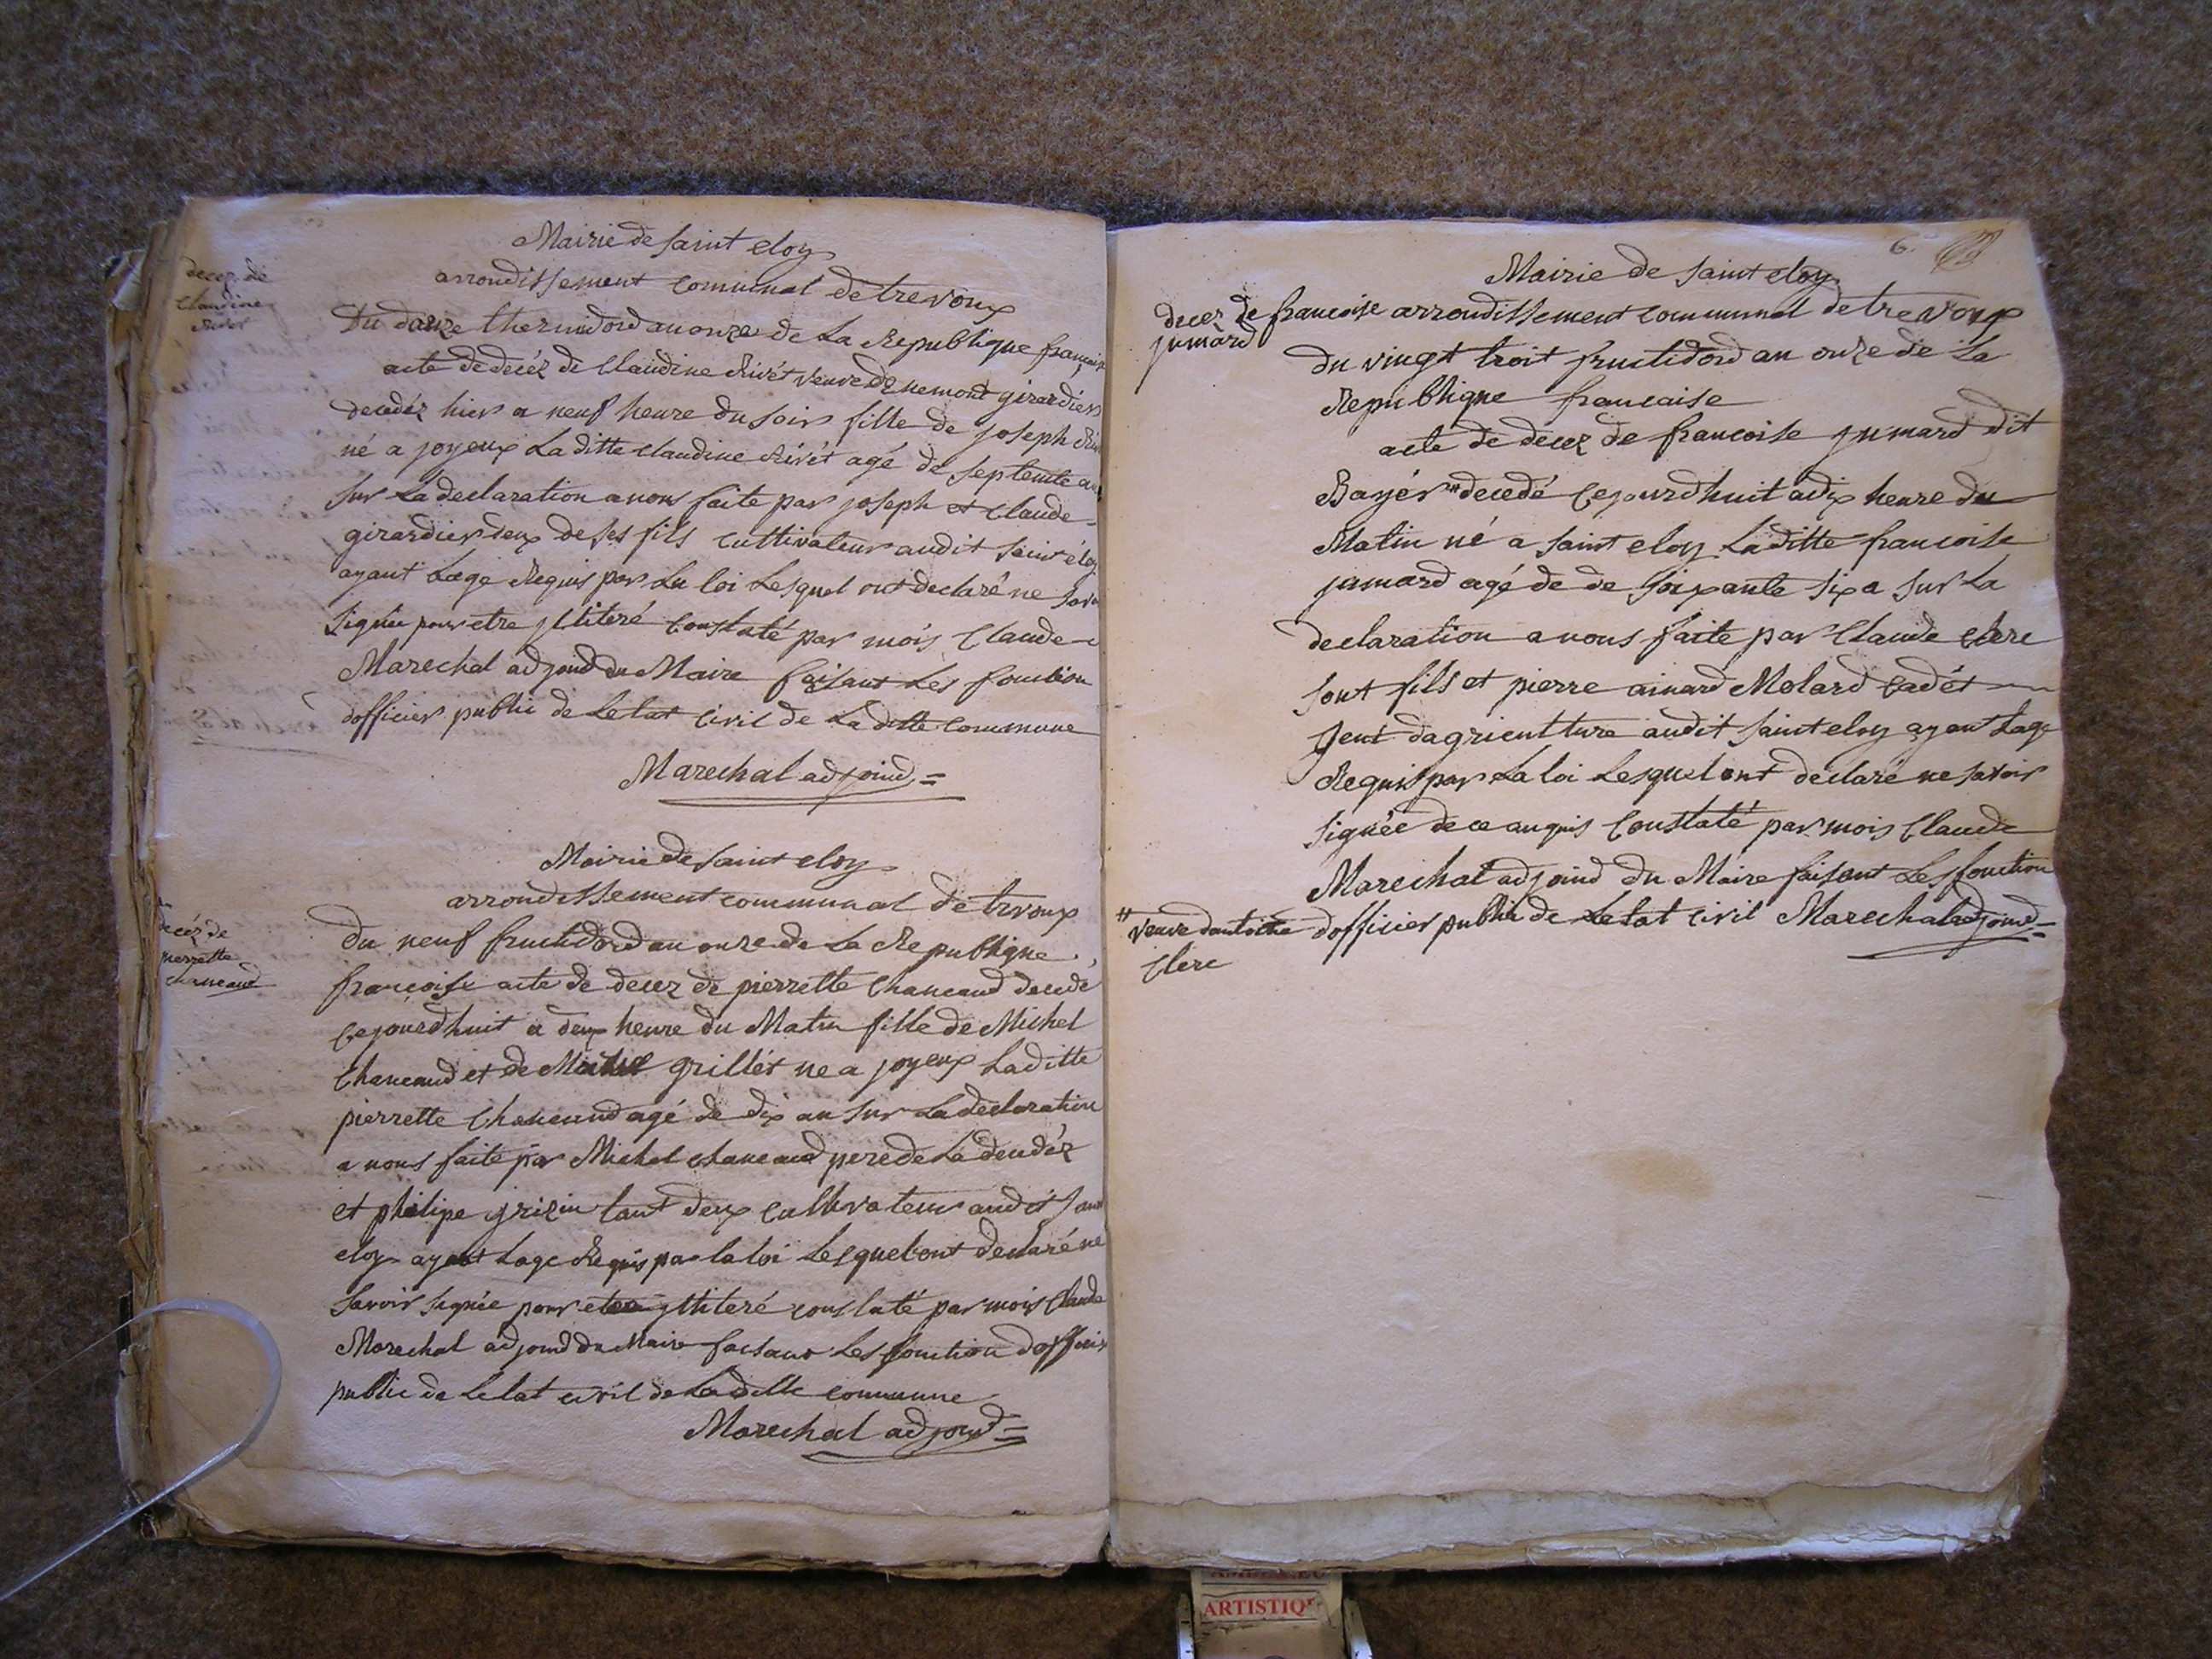 Mairie de saint eloy
arrondissement communal de trevoux
decez de
Claudine
Rivet
du douze thermidord an onze de La Republique francaise
acte de decéz de Claudine Rivét veuve de nemond girardier
decedéz hier a neuf heure du soir fille de joseph Rivet
né a joyeux La ditte Claudine Rivét agé de septente an
sur La declaration a nous faite par joseph et Claude
girardier deux de ses fils cultivateur audit saint éloy
ayant Lage Requis par La loi Lesquel ont declaré ne savoir
signée pour etre ytiteré Constaté par mois Claude
Marechal adjoind du Maire faisant Les fonction
dofficier public de Letat Civil de La ditte Commune
Marechal adjoind =
Mairie de saint eloy
arrondissement communal de trevoux
decéz de
pierrette
chaneaud
du neuf fructidord an onze de La Republique
francoise acte de decez de pierrette Chaneaud decedé
Cejourdhuit a deux heure du Matin fille de Michel
Chaneaud et de grillét ne a joyeux La ditte
pierrette Chaneaud agé de dix an sur La declaration
a nous faite par Michel chaneaud pere de La decedéz
et philipe grizin tout deux cultivateur audit saint
eloy ayant Lage Requis par la loi Lesquel ont declaré ne
savoir signée pour etre yttiteré constaté par mois Claude
Marechal adjoind du Maire faisant Les fonction dofficier
public de Letat civil de La ditte commune
Marechal adjoind =
6.
Mairie de saint eloy
decez de francoise
jumard
arrondissement communal de trevoux
du vingt troit fructidord an onze de La
Republique francaise
acte de decez de francoise jumard dit
Bayér # decedé Cejourdhuit a dix heure du
Matin né a saint eloy La ditte francoise
jumard agé de de soixante six a sur La
declaration a nous faite par Claude clere
sont fils et pierre ainard Molard Cadét
gent dagricultture audit saint eloy ayant Lage
Requis par La loi Lesquel ont declaré ne savoir
signée de ce anquis Constaté par mois Claude
Marechal adjoind du Maire faisant Les fonction
dofficier public de Letat Civil Marechal adjoind =
# veuve dantoine
Clerc
ARTISTIQ